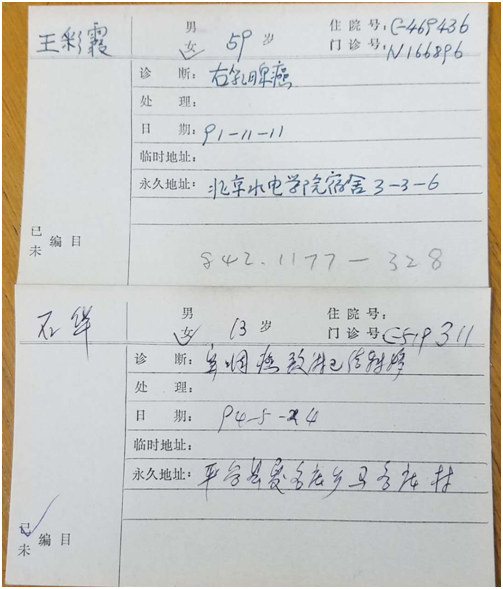 王彩霞 男 女 59 岁 住院号:C-469436
门诊号:N166896
诊 断: 右乳腺癌
处 理:
日 期: 91-11-11
临时地址:
永久地址: 北京水电学院宿舍 3-3-6
已 未 编目
842.1177-328
石华 男 女 13 岁 住院号:
门诊号 C-519311
诊 断: 鼻咽癌 淋巴结转移
处 理:
日 期: 94-5-24
临时地址:
永久地址: 平谷县 各庄乡 各庄村
已 未 编目